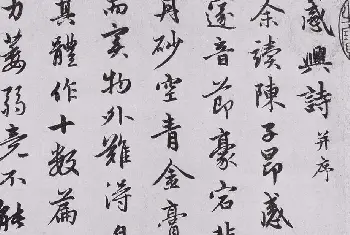 感興詩并序
余讀陳子昂感
遂音節豪宕非
丹砂空青金膏
而實物外難得自
其體作十數篇
力萎弱竟不能